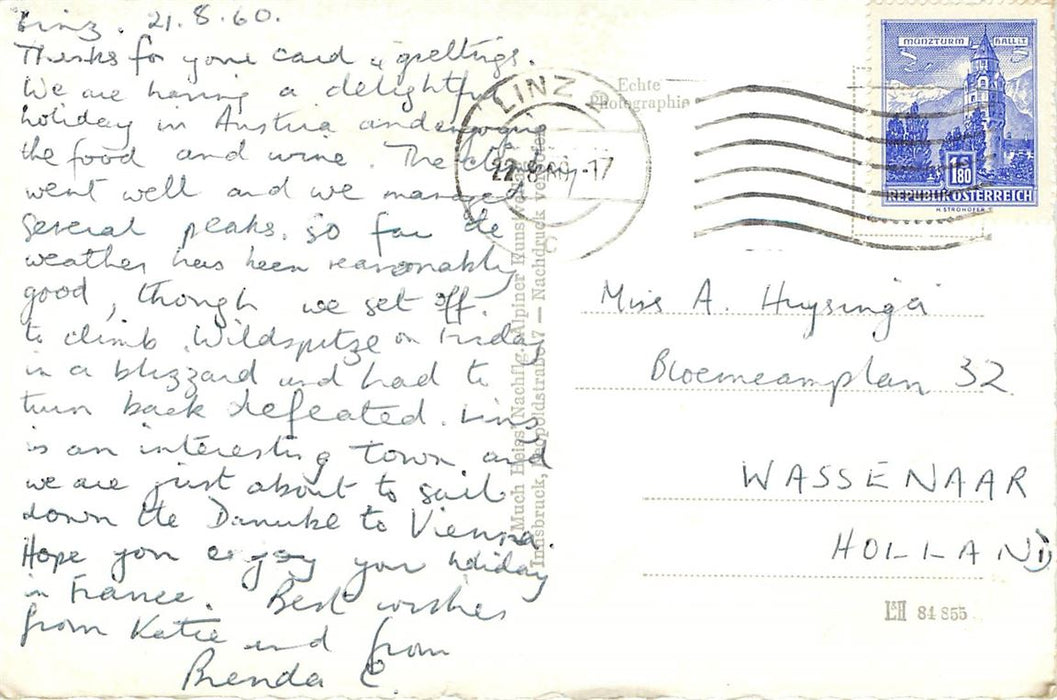 Linz. 21.8.60.
Thanks for your card & greetings.
We are having a delightful
holiday in Austria and enjoying
the food and wine. The climbing
went well and we managed
several peaks. So far the
weather has been reasonably
good, though we set off
to climb Wildspitze on Friday
in a blizzard and had to
turn back defeated. Linz
is an interesting town and
we are just about to sail
down the Danube to Vienna.
Hope you enjoy your holiday
in France. Best wishes
from Katie and from
Brenda C.
Much Heiss' Nachflg. Alpiner Kunstverlag
Innsbruck, Leopoldstraße 7 — Nachdruck verboten
Echte
Photographie
LINZ 2
-17
C
MÜNZTURM HALL i. T.
1.80
REPUBLIK ÖSTERREICH
H. STROHOFER
Miss A. Huysinga
Bloemcamplan 32
WASSENAAR
HOLLAND
84 855